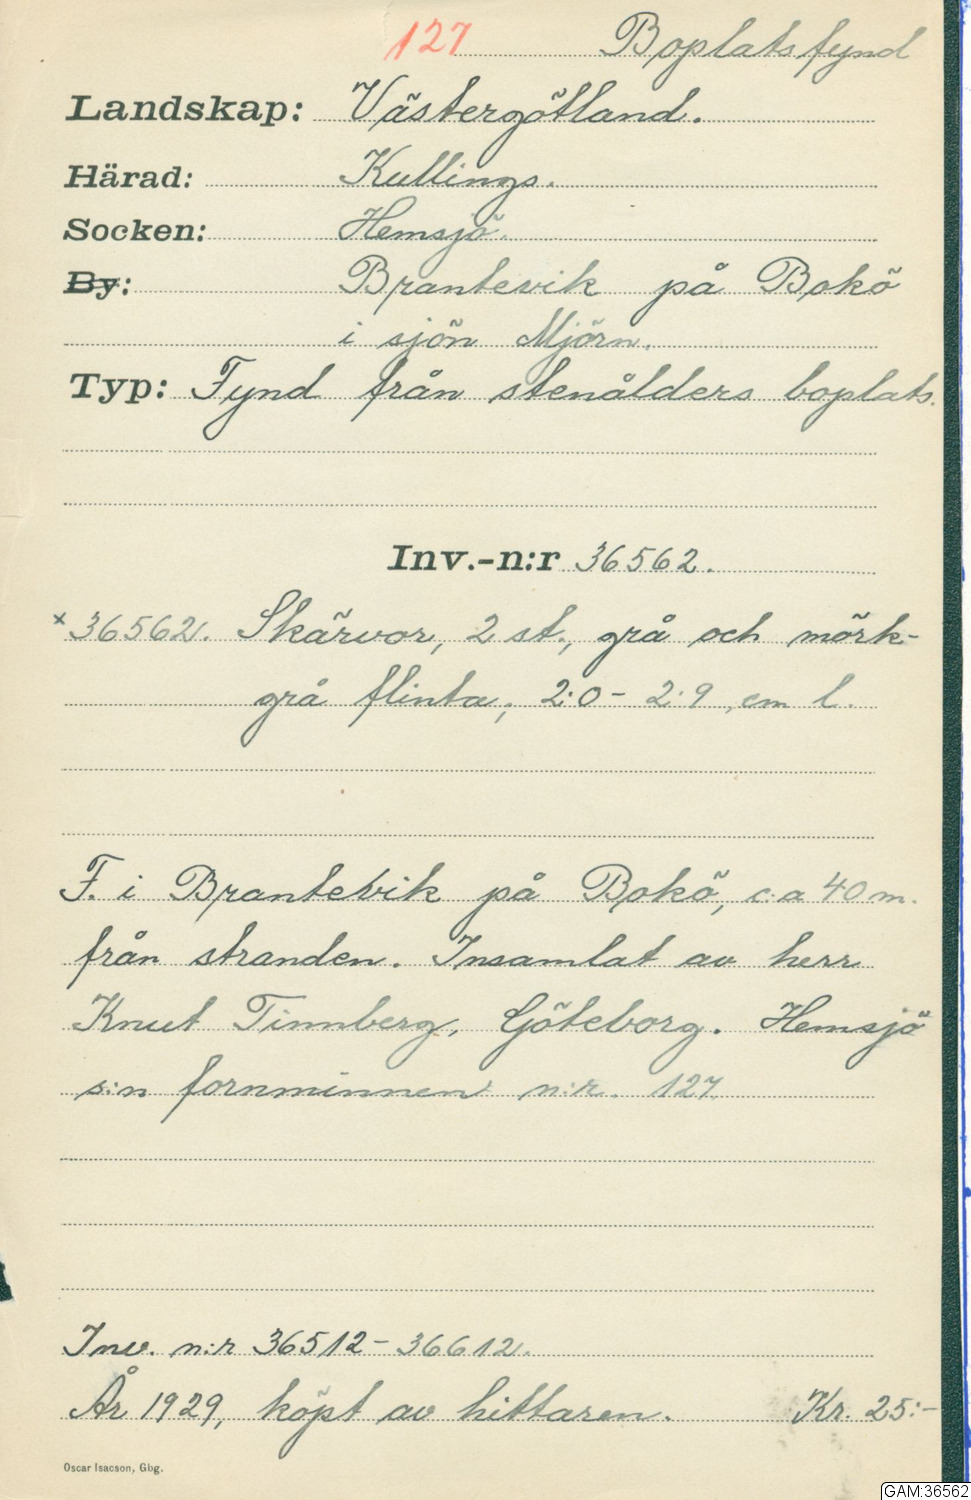 127 Boplatsfynd
Landskap: Västergötland.
Härad: Kullings.
Socken: Hemsjö.
By: Brantevik på Bokö
i sjön Mjörn.
Typ: Fynd från stenålders boplats.
Inv.-n:r 36562.
x 36562. Skärvor, 2 st., grå och mörk-
grå flinta, 2.0 - 2.9 cm l.
F. i Brantebvik på Bokö, c:a 40 m.
från stranden. Insamlat av herr
Knut Tinnberg, Göteborg. Hemsjö
s:n fornminnen n:r. 127
Inv. n:r 36512 - 36612.
År 1929, köpt av hittaren. Kr. 25:-
Oscar Isacson, Gbg.
GAM:36562